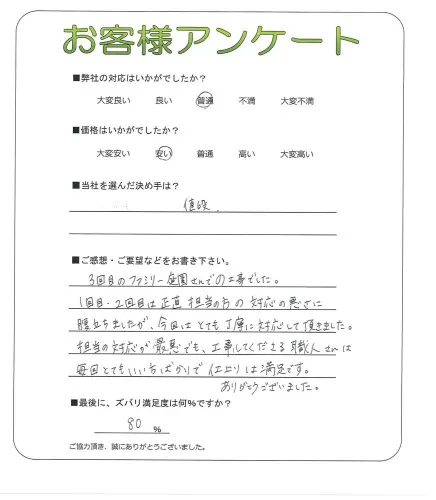 お客様アンケート
■弊社の対応はいかがでしたか？
大変良い 良い 普通 不満 大変不満
■価格はいかがでしたか？
大変安い 安い 普通 高い 大変高い
■当社を選んだ決め手は？
値段.
■ご感想・ご要望などをお書き下さい。
3回目のファミリー庭園さんでの工事でした。
1回目・2回目は正直 担当の方の 対応の悪さに
腹立ちましたが、今回は とても 丁寧に対応して 頂きました。
担当の対応が 最悪でも、工事してくださる 職人さんは
毎回とてもいい方ばかりで 仕上りは満足です。
ありがとうございました。
■最後に、ズバリ満足度は何%ですか？
80 %
ご協力頂き、誠にありがとうございました。